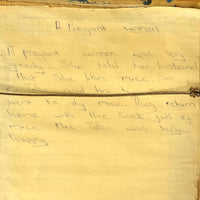 A Pregant woman
A pregant women was very
greedy. She told her husband
that She likes mice. So
and his
went to dig mice. They return
home with the sack full of
mice. Mrs was very
Happy